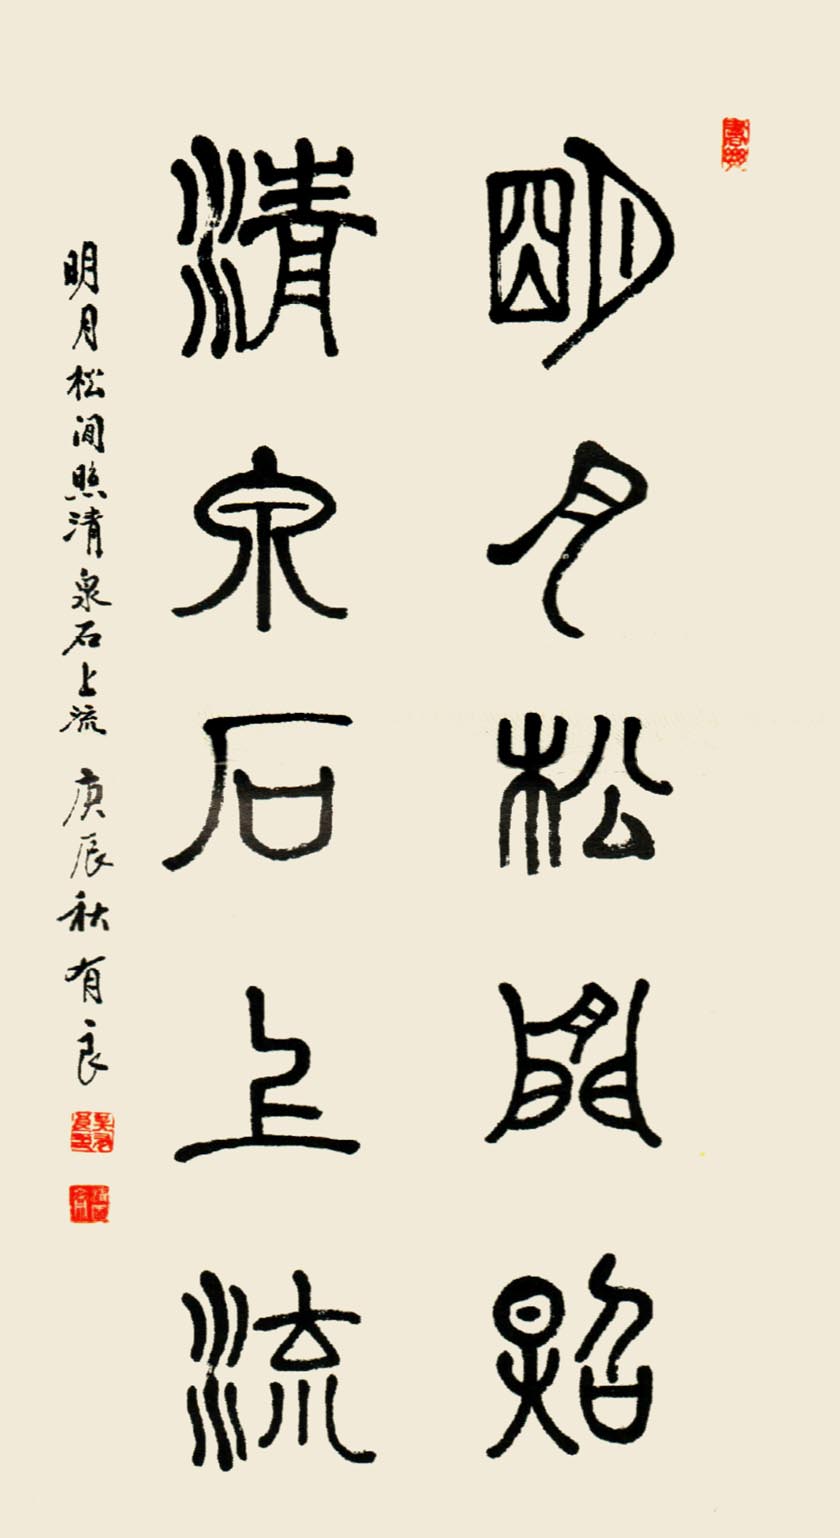 明月松間照
清泉石上流
明月松間照清泉石上流 庚辰秋有良